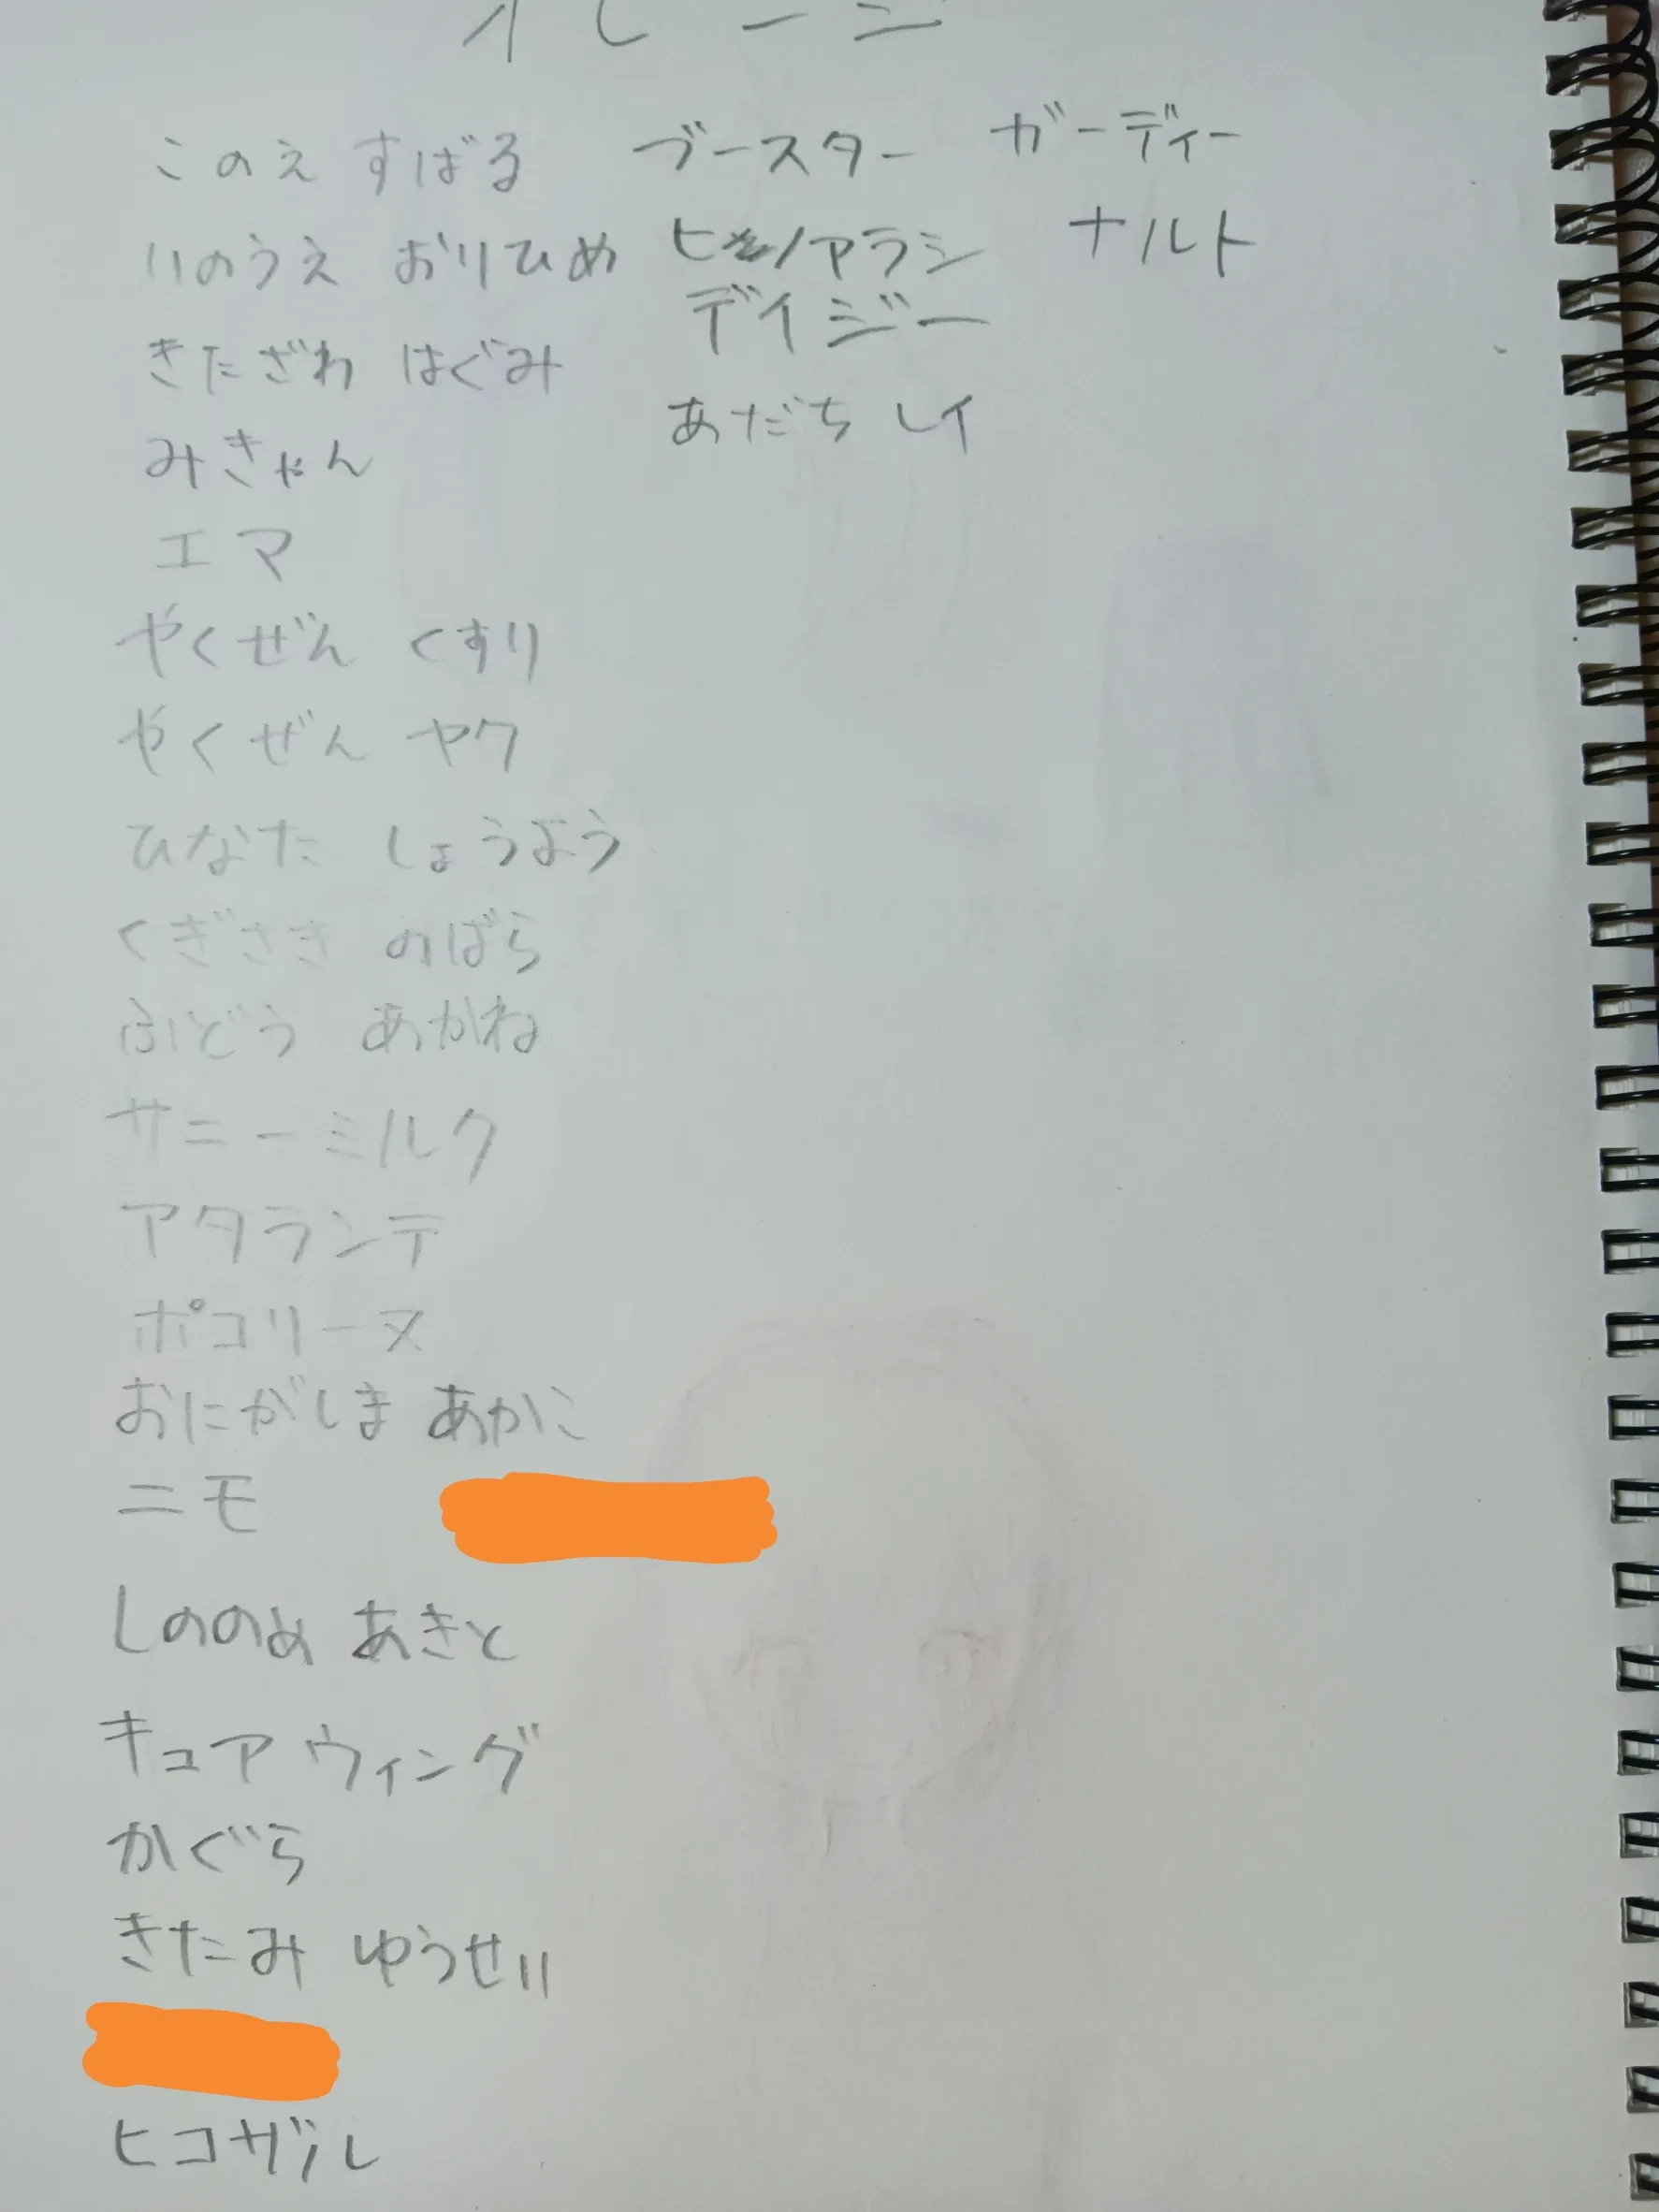 オレンジ
このえ すばる
いのうえ おりひめ
きたざわ はぐみ
みきゃん
エマ
やくぜん くすり
やくぜん ヤク
ひなた しょうよう
くぎさき のばら
ふどう あかね
サニーミルク
アタランテ
ポコリーヌ
おにがしま あかこ
ニモ
しののめ あきと
キュアウィング
かぐら
きたみ ゆうせい
ヒコザル
ブースター
ヒノアラシ
デイジー
あだち レイ
ガーディー
ナルト